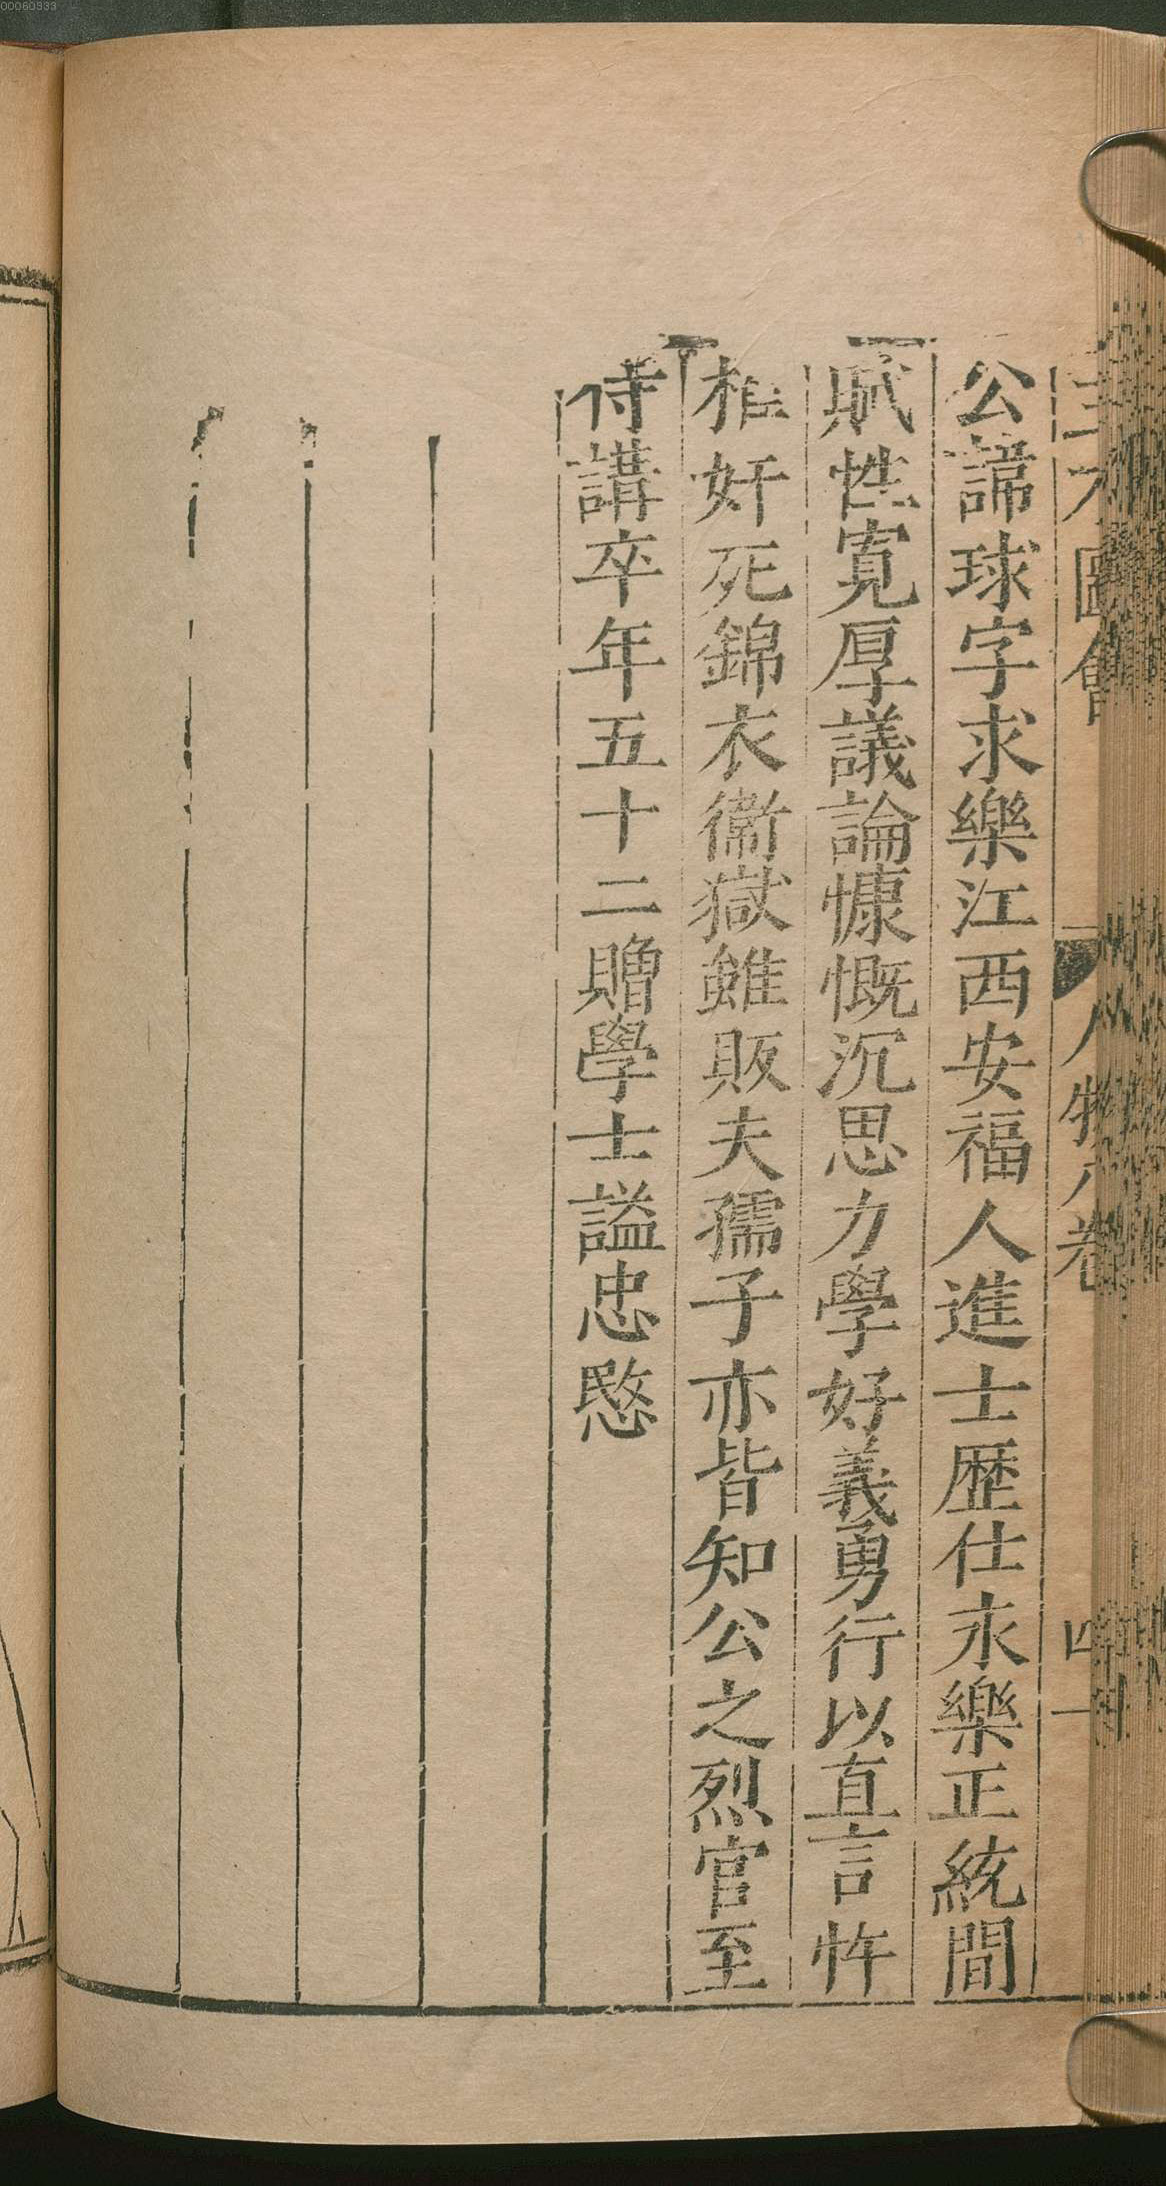 00060333
三才圖會 人物八卷 四十一
公諦球字求樂江西安福人進士歴仕永樂正統間
賦性寛厚議論慷慨沉思力學好義勇行以直言忤
權奸死錦衣衛獄雖販夫孺子亦皆知公之烈官至
侍講卒年五十二贈學士謚忠愍